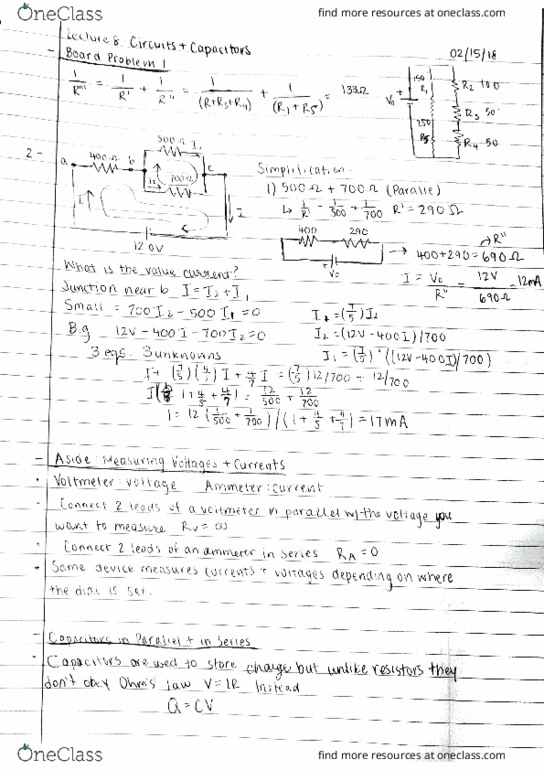 OneClass
find more resources at oneclass.com
Lecture 8 Circuits + Capacitors
02/15/18
- Board Problem 1
1/R''' = 1/R' + 1/R'' = 1/(R2+R3+R4) + 1/(R1+R5) = 133Ω
150 R1
R2 100
V0
R3 50
250 R5
R4 50
2-
500Ω I1
a 400Ω b
700Ω
c
I2
I
I
12.0V
Simplification.
1) 500Ω + 700Ω (Parallel)
↳ 1/R' = 1/500 + 1/700 R' = 290Ω
400 290
V0
R''
→ 400+290=690Ω
What is the value current?
I = V0/R'' = 12V/690Ω = 12mA
Junction near b I = I2 + I1
Small = 700I2 - 500I1 = 0
I1 = (7/5)I2
Big 12V - 400I - 700I2 = 0
I2 = (12V-400I)/700
3 eqs. 3 unknowns
I1 = (7/5)·((12V-400I)/700)
I + (7/5)(4/7)I + 4/7 I = (7/5)12/700 + 12/700
I(1 + 4/5 + 4/7) = 12/500 + 12/700
I = 12(1/500 + 1/700)/(1 + 4/5 + 4/7) = 17mA
- Aside: Measuring Voltages + Currents
• Voltmeter: voltage Ammeter: current
- Connect 2 leads of a voltmeter in parallel w/ the voltage you
want to measure RV = ∞
• Connect 2 leads of an ammeter in series RA = 0
• Same device measures currents + voltages depending on where
the dial is set.
- Capacitors in Parallel + in Series
• Capacitors are used to store charge but unlike resistors they
don't obey Ohm's law V=IR Instead
Q = CV
OneClass
find more resources at oneclass.com